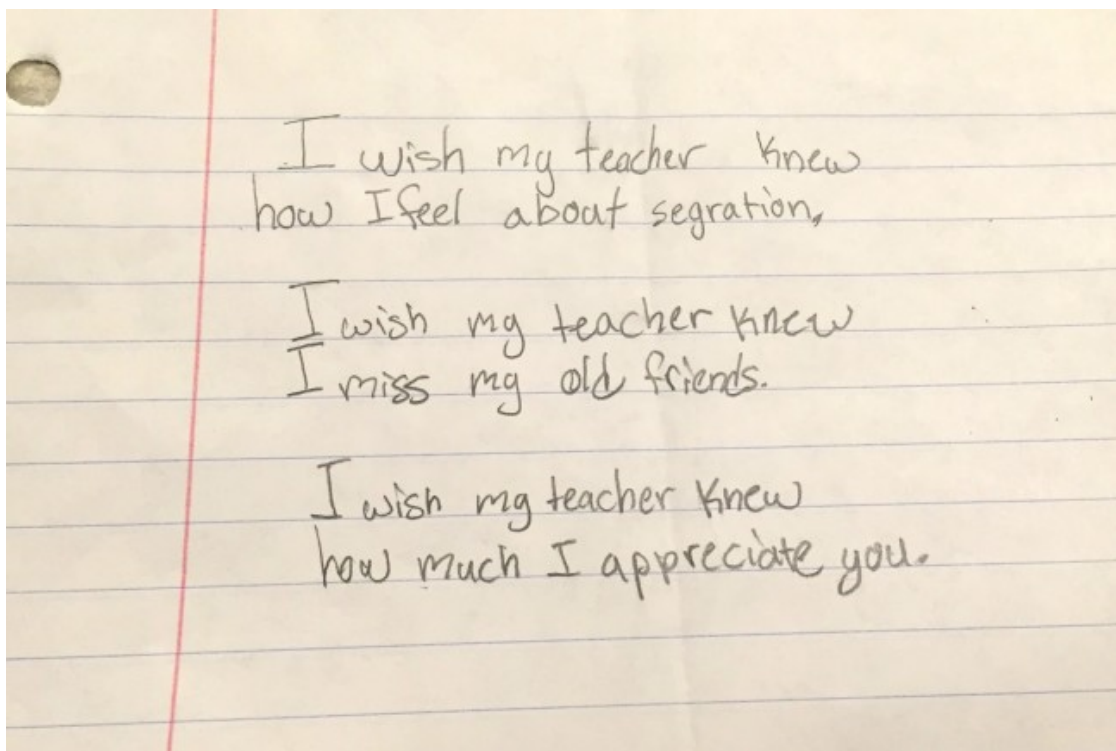 I wish my teacher knew
how I feel about segration,
I wish my teacher knew
I miss my old friends.
I wish my teacher knew
how much I appreciate you.